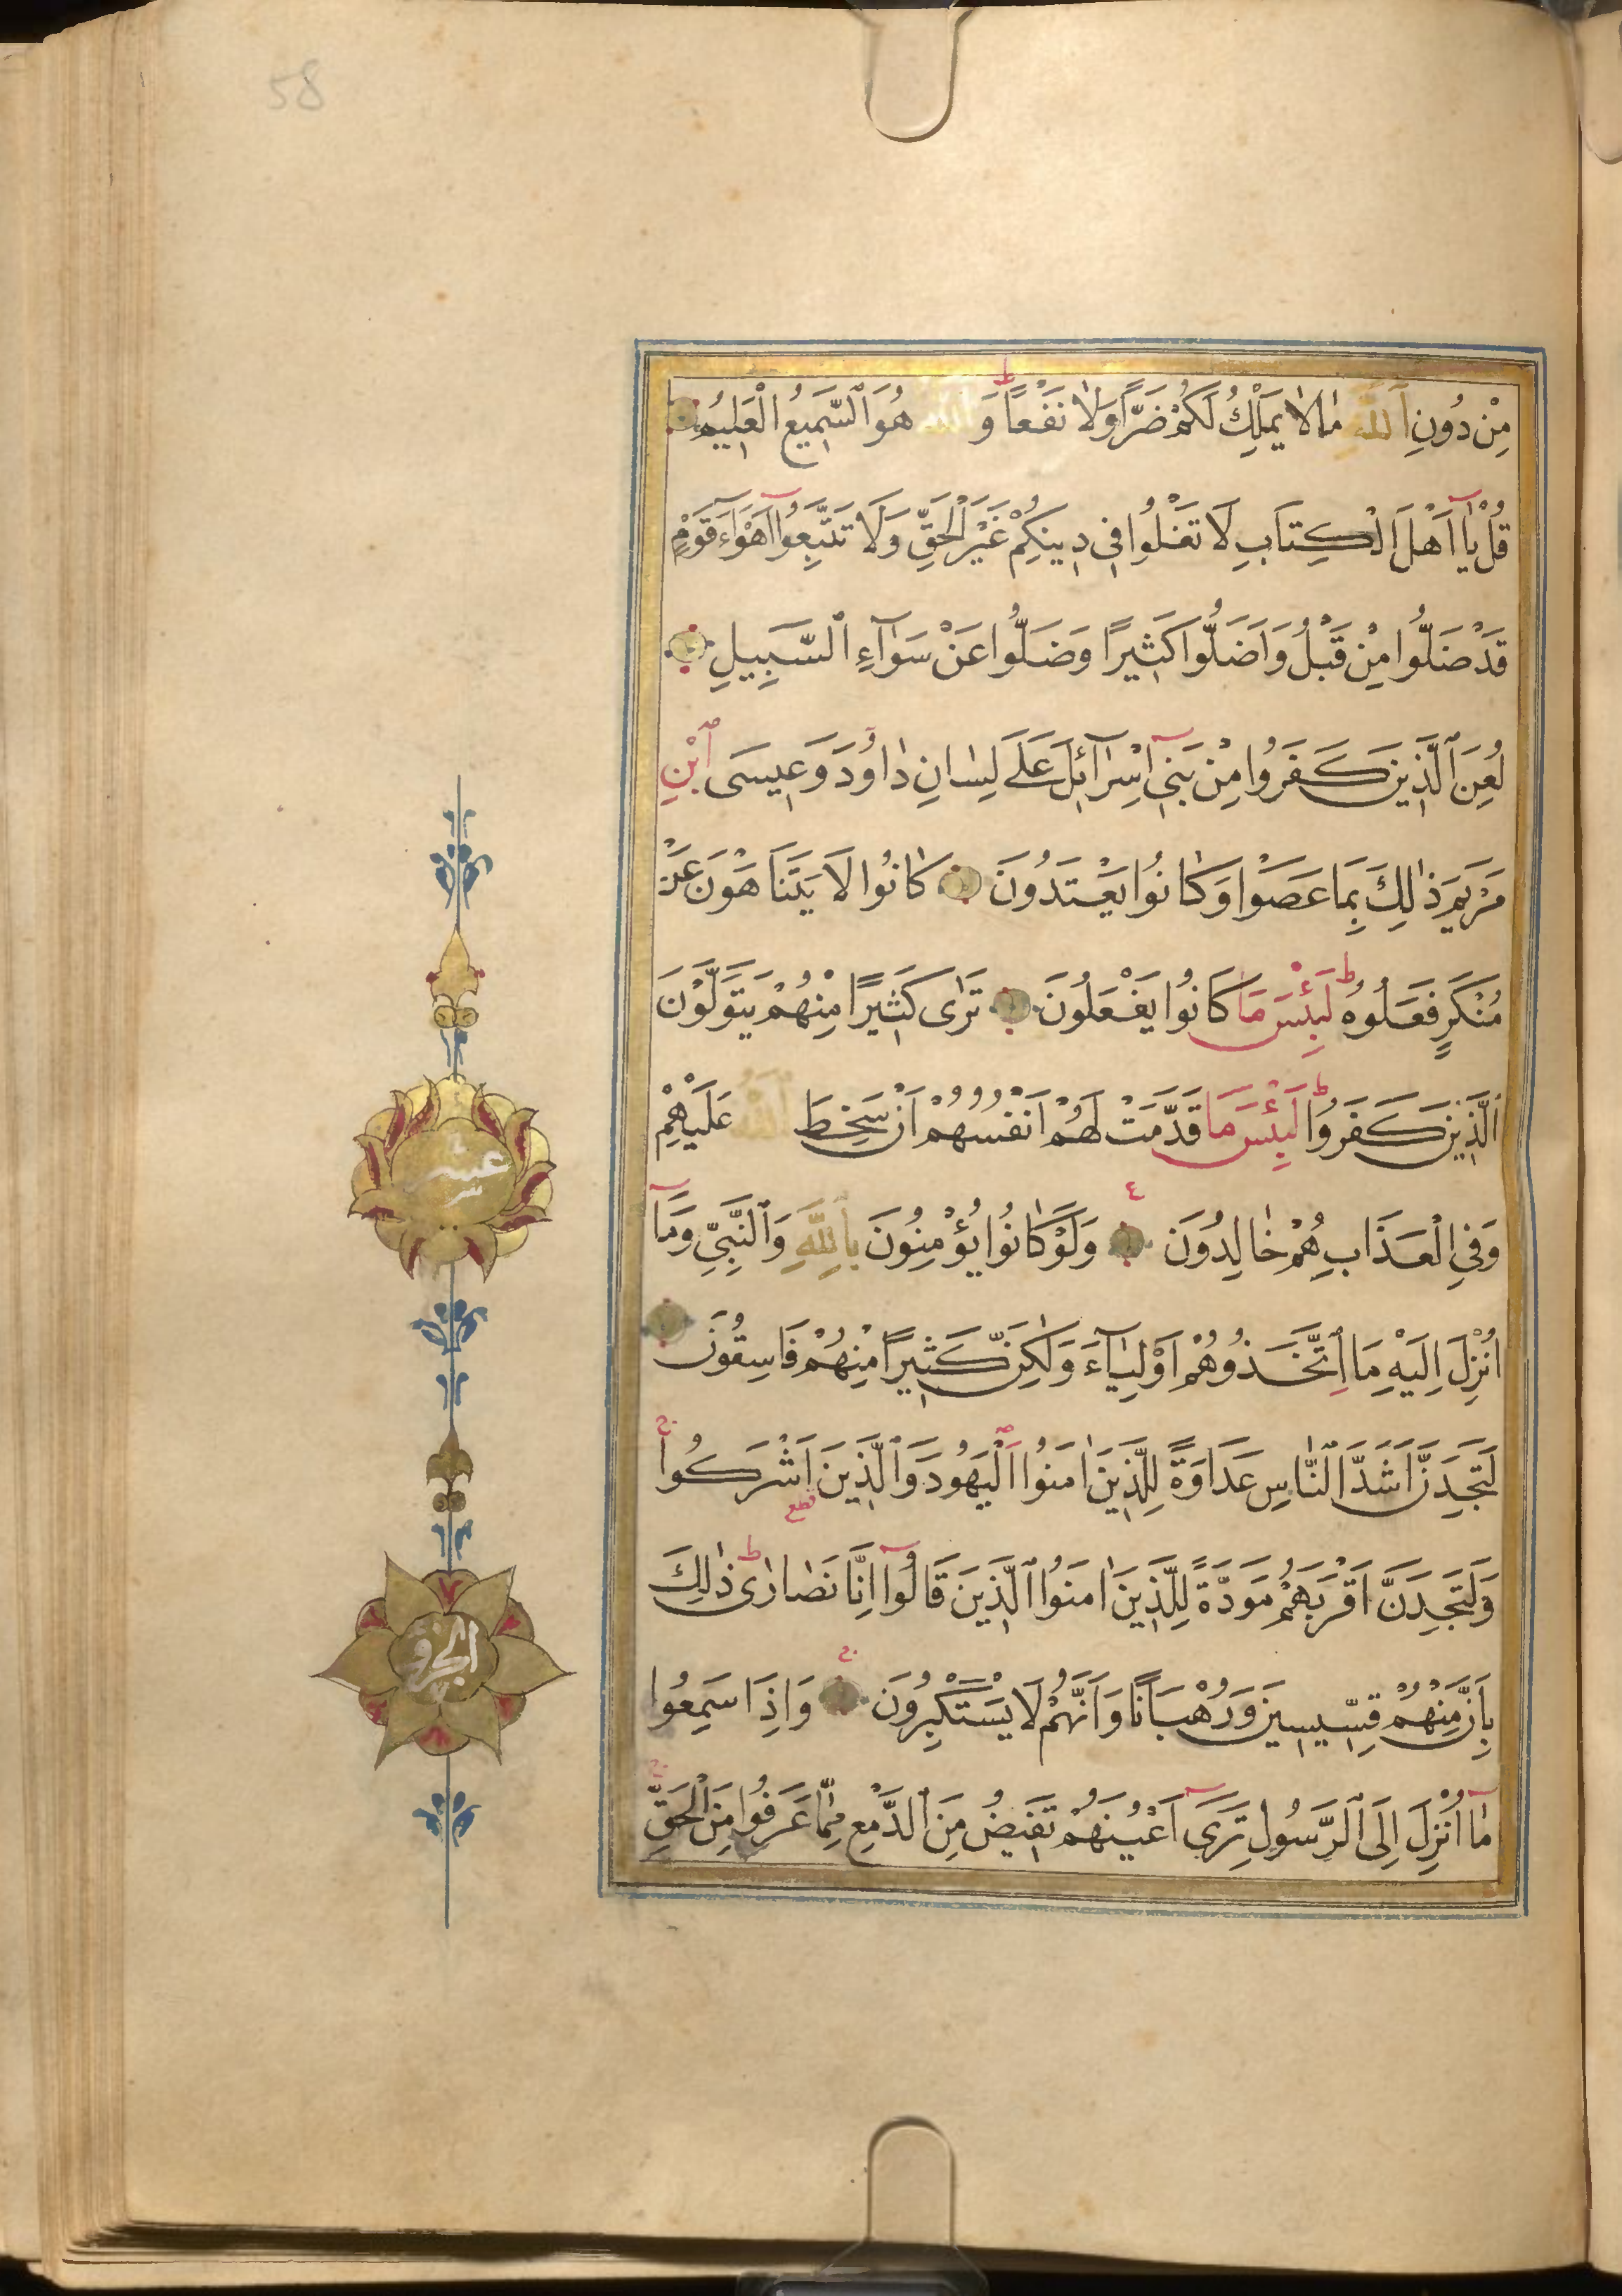 58
مِنْ دُونِ ٱللّٰهِ مٰا لٰا يَمْلِكُ لَكُمْ ضَرًّا وَلٰا نَفْعًا ط وَٱللّٰهُ هُوَ ٱلسَّمِيعُ الْعَلِيمُ
قُلْ يٰٓا اَهْلَ الْكِتَابِ لَا تَغْلُوا فِي دِينِكُمْ غَيْرَ الْحَقِّ وَلَا تَتَّبِعُوٓا اَهْوَٓاءَ قَوْمٍ
قَدْ ضَلُّوا مِنْ قَبْلُ وَاَضَلُّوا كَثِيرًا وَضَلُّوا عَنْ سَوَٓاءِ ٱلسَّبِيلِ
لُعِنَ ٱلَّذِينَ كَفَرُوا مِنْ بَنِٓي اِسْرَٓائِلَ عَلَى لِسَانِ دٰاوُدَ وَعِيسَى ٱبْنِ
مَرْيَمَ ذٰلِكَ بِمَا عَصَوْا وَكَانُوا يَعْتَدُونَ كَانُوا لَا يَتَنَاهَوْنَ عَنْ
مُنْكَرٍ فَعَلُوهُ ط لَبِئْسَ مَا كَانُوا يَفْعَلُونَ تَرٰى كَثِيرًا مِنْهُمْ يَتَوَلَّوْنَ
ٱلَّذِينَ كَفَرُوا ط لَبِئْسَ مَا قَدَّمَتْ لَهُمْ اَنْفُسُهُمْ اَنْ سَخِطَ ٱللّٰهُ عَلَيْهِمْ
وَفِي الْعَذَابِ هُمْ خٰالِدُونَ ٤ وَلَوْ كَانُوا يُؤْمِنُونَ بِٱللّٰهِ وَٱلنَّبِيِّ وَمَٓا
اُنْزِلَ اِلَيْهِ مَا اتَّخَذُوهُمْ اَوْلِيَٓاءَ وَلٰكِنَّ كَثِيرًا مِنْهُمْ فَاسِقُونَ
لَتَجِدَنَّ اَشَدَّ ٱلنَّاسِ عَدَاوَةً لِلَّذِينَ اٰمَنُوا ٱلْيَهُودَ وَٱلَّذِينَ اَشْرَكُوا ج
قطع
وَلَتَجِدَنَّ اَقْرَبَهُمْ مَوَدَّةً لِلَّذِينَ اٰمَنُوا ٱلَّذِينَ قَالُوٓا اِنَّا نَصٰارٰى ط ذٰلِكَ
بِاَنَّ مِنْهُمْ قِسِّيسِينَ وَرُهْبَانًا وَاَنَّهُمْ لَا يَسْتَكْبِرُونَ ج وَاِذَا سَمِعُوا
مٰٓا اُنْزِلَ اِلَى ٱلرَّسُولِ تَرٰٓى اَعْيُنَهُمْ تَفِيضُ مِنَ ٱلدَّمْعِ مِمَّا عَرَفُوا مِنَ الْحَقِّ ج
عشر
الجزؤ
٧